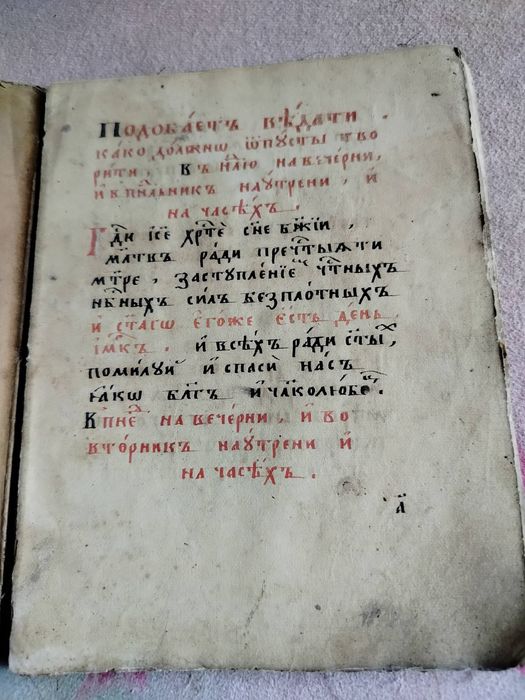 Подоба́етъ вѣ́дати .
ка́кѡ до́лжнѡ ѿпусты̀ тво
рити , въ нлⷣю на вече́рни ,
и҆ в пнⷣльникъ на ᲂу҆́трени , и҆
на часѣ́хъ .
Гдⷭ҇и І҆се хрⷭ҇тѐ сн҃е бж҃їи ,
мл҃твъ ради пречтⷭ҇ыѧ ти
мт҃ре , заступле́нїе чтⷭ҇ныхъ
нбⷭ҇ныхъ си́лъ безпло́тныхъ
и҆ ст҃агѡ є҆гѡ́же є҆́сть де́нь
и҆́мкъ . и҆ всѣ́хъ ра́ди ст҃ыⷯ
поми́луи и҆ спасѝ на́съ
ꙗ҆́кѡ бл҃гъ и҆ чл҃колю́бецъ .
В пнеⷣ на вече́рни , и҆ во
вто́рникъ на ᲂу҆́трени и҆
на часѣ́хъ .
а҃